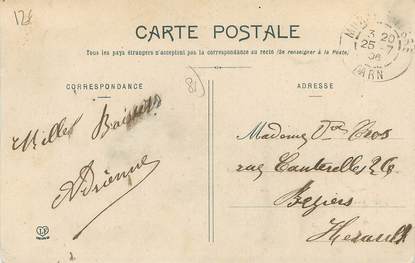 12€
CARTE POSTALE
Tous les pays étrangers n'acceptent pas la correspondance au recto (Se renseigner à la Poste)
CORRESPONDANCE
81)
ADRESSE
3 20
25 - 7
TARN
Milles Baisers
Adrienne
Madame Cros
rue Canterelles
Beziers
Herault